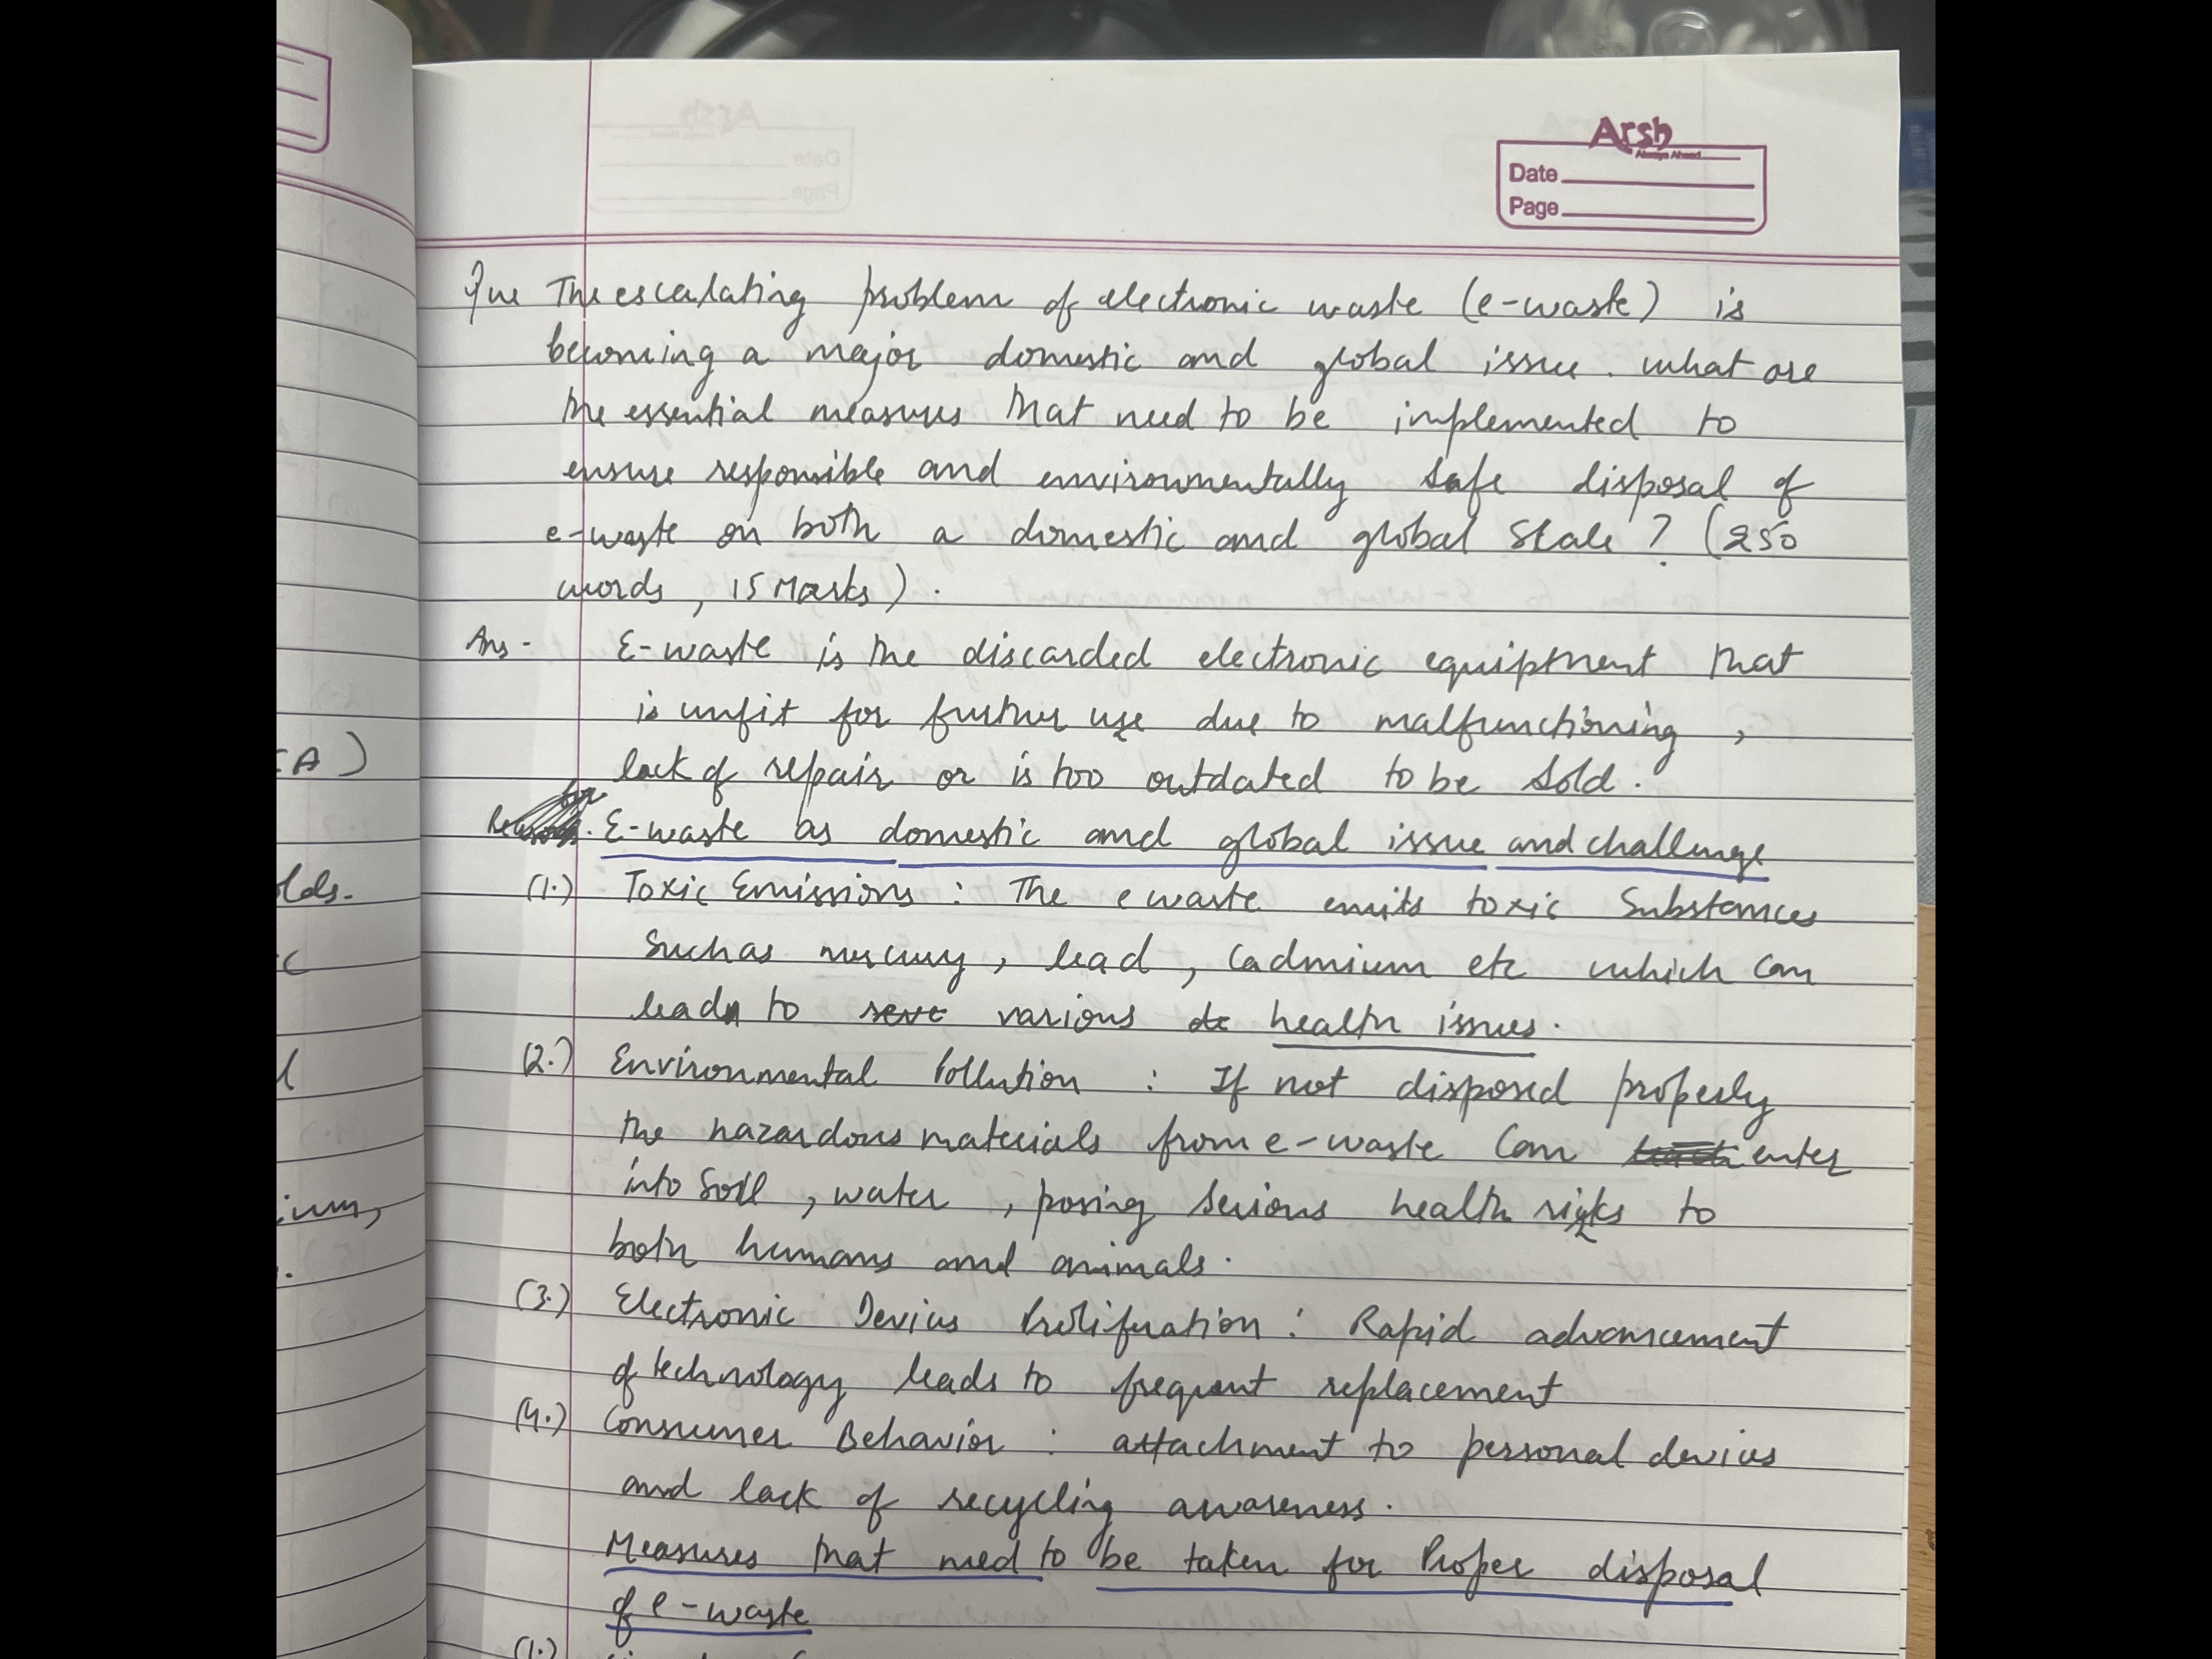 Arsh
Always Ahead
Date
Page
Que The escalating problem of electronic waste (e-waste) is
becoming a major domestic and global issue. what are
the essential measures that need to be implemented to
ensure responsible and environmentally safe disposal of
e-waste on both a domestic and global Scale? (250
words, 15 Marks).
Ans - E-waste is the discarded electronic equiptment that
is unfit for further use due to malfunctioning,
lack of repair or is too outdated to be Sold.
E-waste as domestic and global issue and challenge
(1.) Toxic Emissions : The e waste emits toxic Substances
Such as mercury, lead, Cadmium etc which can
lead to various health issues.
(2.) Environmental Pollution : If not disposed properly
the hazardous materials from e-waste Can enter
into Soil, water, posing Serious health risks to
both humans and animals.
(3.) Electronic Devices Proliferation : Rapid advancement
of technology leads to frequent replacement
(4.) Consumer Behavior : attachment to personal devices
and lack of recycling awareness.
Measures that need to be taken for Proper disposal
of e-waste
(1.)
A)
olds.